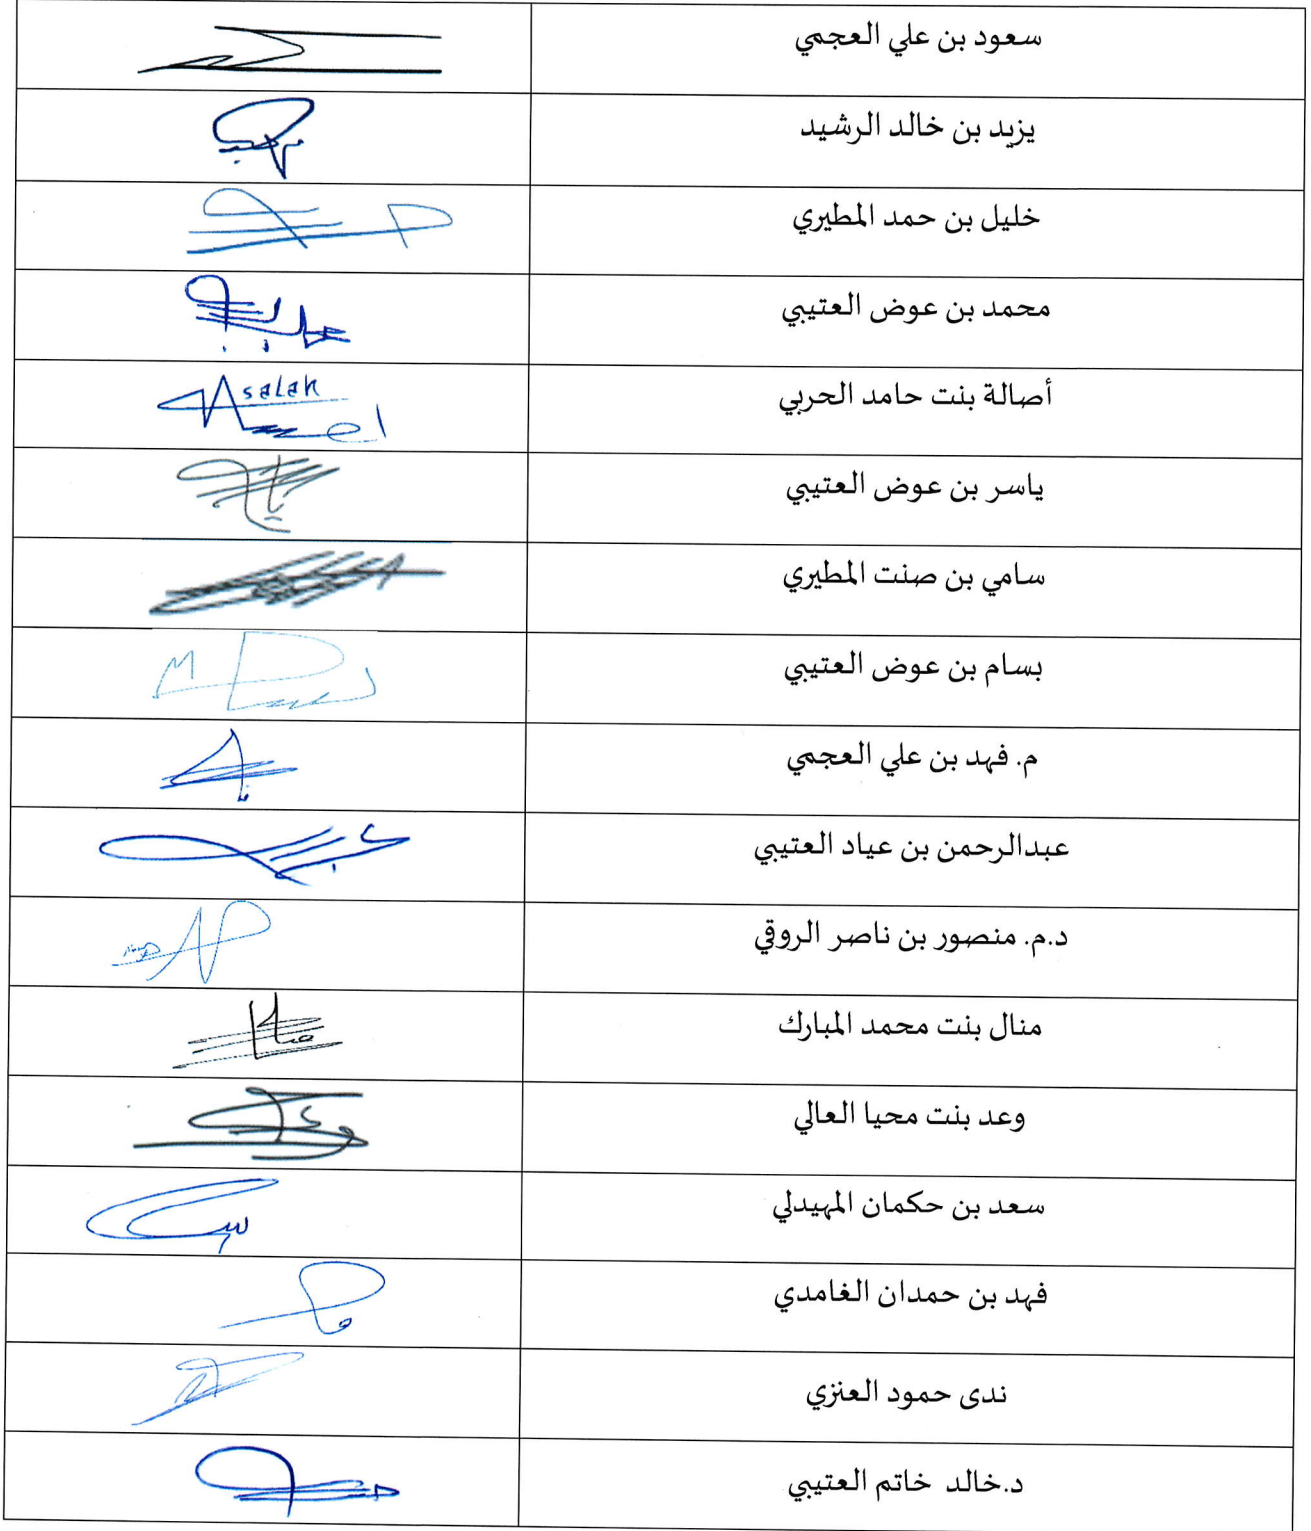 سعود بن علي العجمي
يزيد بن خالد الرشيد
خليل بن حمد المطيري
محمد بن عوض العتيبي
أصالة بنت حامد الحربي
Asalah
ياسر بن عوض العتيبي
سامي بن صنت المطيري
بسام بن عوض العتيبي
م. فهد بن علي العجمي
عبدالرحمن بن عياد العتيبي
د.م. منصور بن ناصر الروقي
منال بنت محمد المبارك
وعد بنت محيا العالي
سعد بن حكمان المهيدلي
فهد بن حمدان الغامدي
ندى حمود العنزي
د.خالد خاتم العتيبي